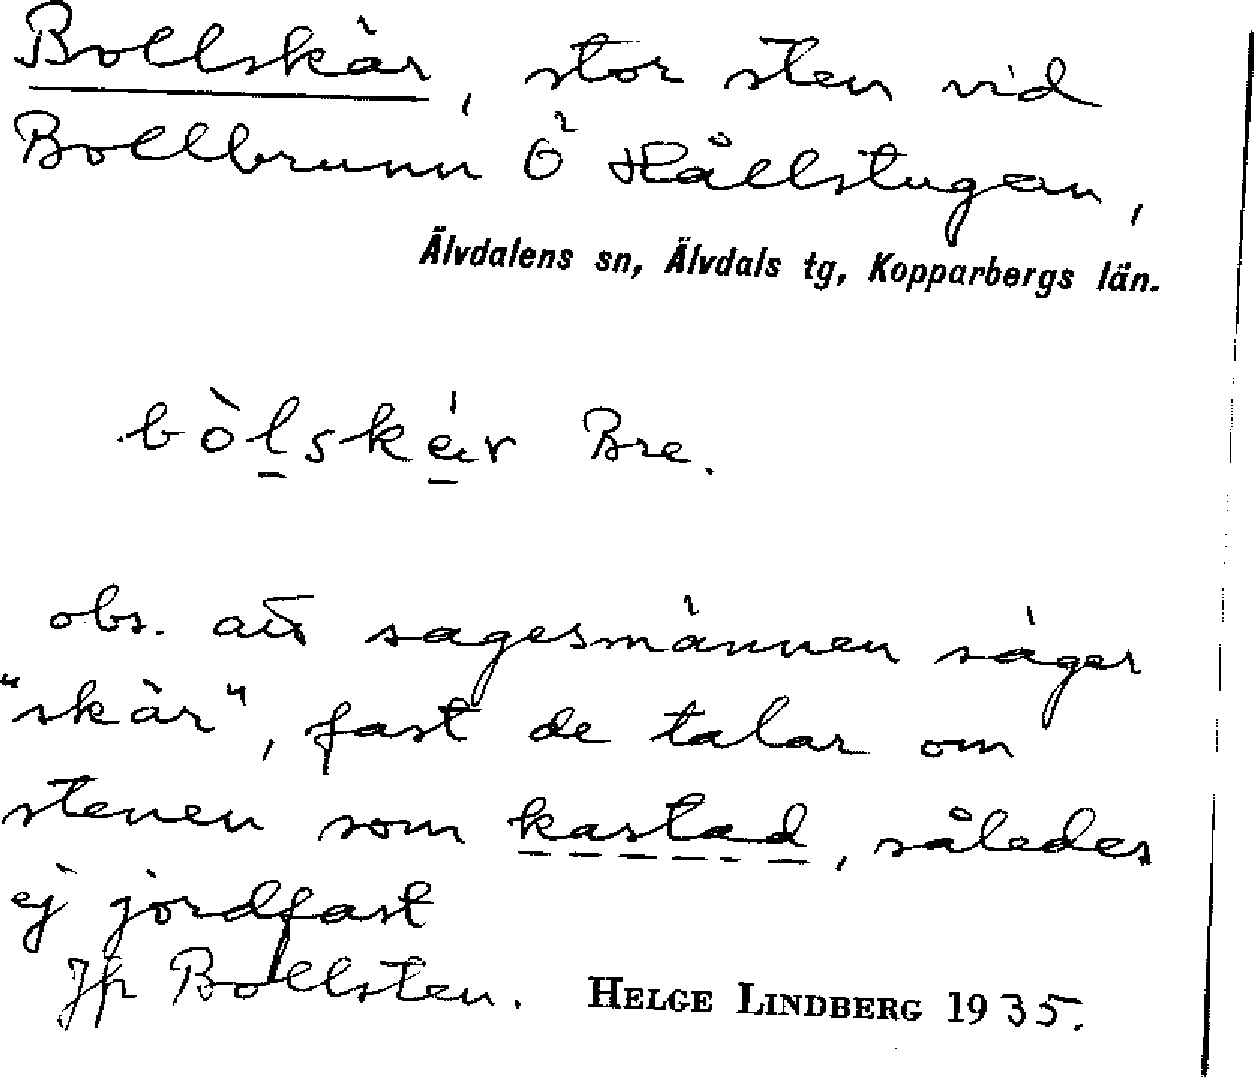 Bollskär, stor sten vid
Bollbrunn Ö Hållstugan,
Älvdalens sn, Älvdals tg, Kopparbergs län.
bòlskär Bre.
obs. att sagesmännen säger
"skär", fast de talar om
stenen som kastad, således
ej jordfast
Jfr Bollsten. HELGE LINDBERG 1935.